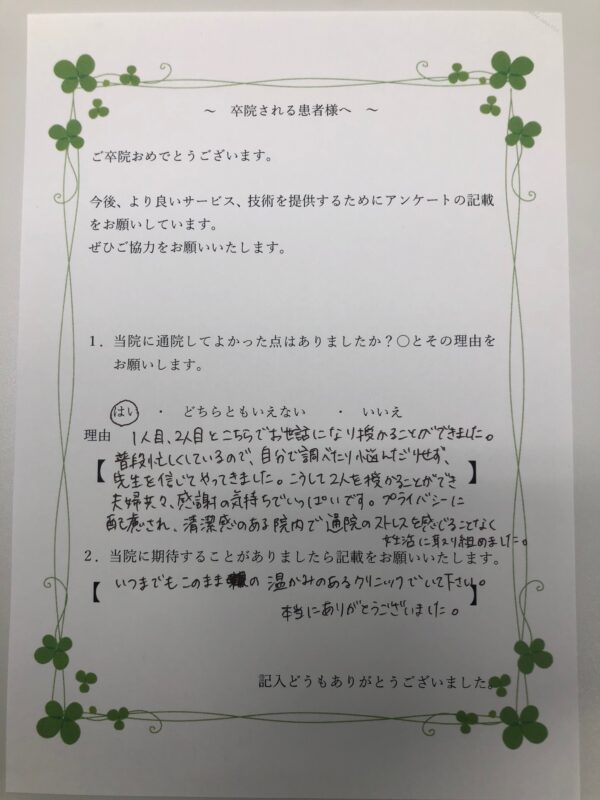 ～　卒院される患者様へ　～
ご卒院おめでとうございます。
今後、より良いサービス、技術を提供するためにアンケートの記載
をお願いしています。
ぜひご協力をお願いいたします。
１．当院に通院してよかった点はありましたか？〇とその理由を
お願いします。
はい　・　どちらともいえない　・　いいえ
理由　1人目、2人目とこちらでお世話になり授かることができました。
【普段忙しくしているので、自分で調べたり悩んだりせず、
先生を信じてやってきました。こうして2人を授かることができ】
夫婦共々、感謝の気持ちでいっぱいです。プライバシーに
配慮され、清潔感のある院内で通院のストレスを感じることなく
妊活に取り組めました。
２．当院に期待することがありましたら記載をお願いいたします。
【いつまでもこのままの温かみのあるクリニックでいて下さい。
本当にありがとうございました。】
記入どうもありがとうございました。